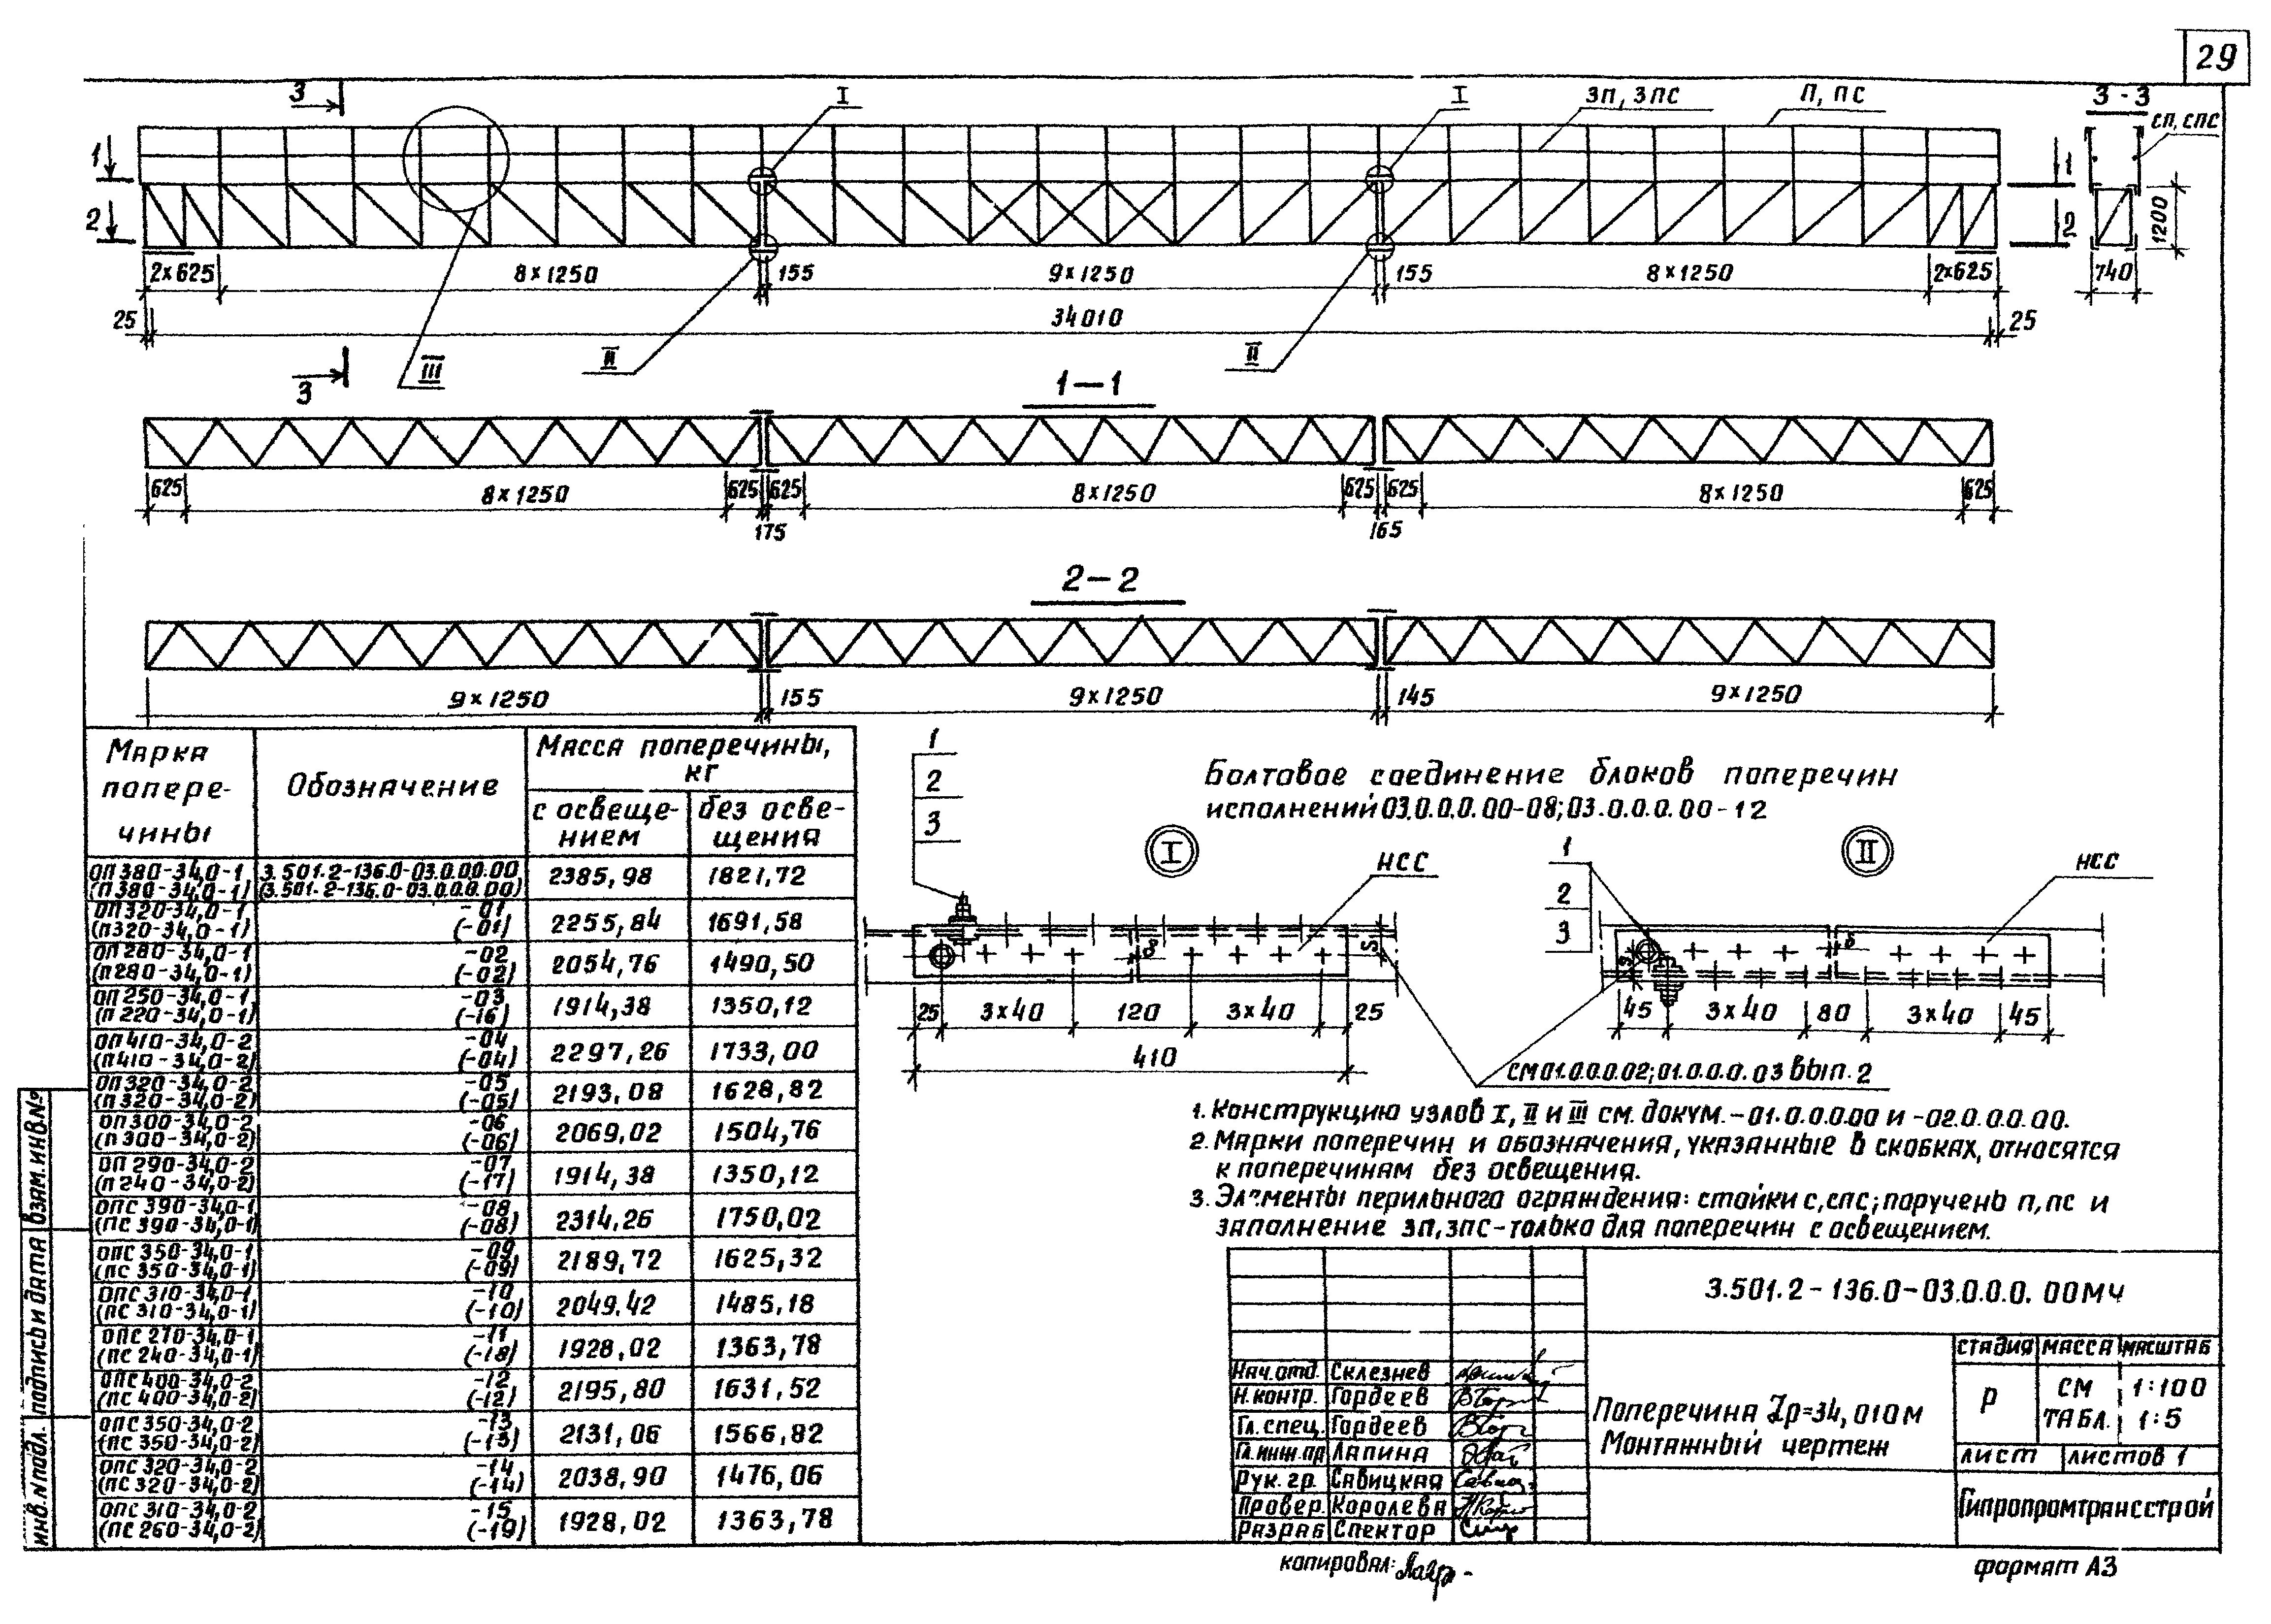 29
3
I
I
ЗП, ЗПС
П, ПС
3-3
СП, СПС
1
1
2
2
1200
2×625
8×1250
155
9×1250
155
8×1250
2×625
740
25
34010
25
III
II
II
3
1—1
625
8×1250
625
625
8×1250
625
625
8×1250
625
175
165
2—2
9×1250
155
9×1250
145
9×1250
Марка поперечины
Обозначение
Масса поперечины, кг
с освещением
без освещения
ОП380-34,0-1 3.501.2-136.0-03.0.00.00 2385,98 1821,72
(П380-34,0-1) (3.501.2-136.0-03.0.0.0.00)
ОП320-34,0-1 -01 2255,84 1691,58
(П320-34,0-1) (-01)
ОП280-34,0-1 -02 2054,76 1490,50
(П280-34,0-1) (-02)
ОП250-34,0-1 -03 1914,38 1350,12
(П220-34,0-1) (-16)
ОП410-34,0-2 -04 2297,26 1733,00
(П410-34,0-2) (-04)
ОП320-34,0-2 -05 2193,08 1628,82
(П320-34,0-2) (-05)
ОП300-34,0-2 -06 2069,02 1504,76
(П300-34,0-2) (-06)
ОП290-34,0-2 -07 1914,38 1350,12
(П240-34,0-2) (-17)
ОПС390-34,0-1 -08 2314,26 1750,02
(ПС390-34,0-1) (-08)
ОПС350-34,0-1 -09 2189,72 1625,32
(ПС350-34,0-1) (-09)
ОПС310-34,0-1 -10 2049,42 1485,18
(ПС310-34,0-1) (-10)
ОПС270-34,0-1 -11 1928,02 1363,78
(ПС240-34,0-1) (-18)
ОПС400-34,0-2 -12 2195,80 1631,52
(ПС400-34,0-2) (-12)
ОПС350-34,0-2 -13 2131,06 1566,82
(ПС350-34,0-2) (-13)
ОПС320-34,0-2 -14 2038,90 1476,06
(ПС320-34,0-2) (-14)
ОПС310-34,0-2 -15 1928,02 1363,78
(ПС260-34,0-2) (-19)
Болтовое соединение блоков поперечин
исполнений 03.0.0.0.00-08; 03.0.0.0.00-12
1
2
3
I
НСС
25
3×40
120
3×40
25
410
1
2
3
II
НСС
45
3×40
80
3×40
45
см 01.0.0.0.02; 01.0.0.0.03 вып. 2
1. Конструкцию узлов I, II и III см. докум. -01.0.0.0.00 и -02.0.0.0.00.
2. Марки поперечин и обозначения, указанные в скобках, относятся
к поперечинам без освещения.
3. Элементы перильного ограждения: стойки с, спс; поручень п, пс и
заполнение зп, зпс-только для поперечин с освещением.
3.501.2-136.0-03.0.0.0.00МЧ
Поперечина Lр=34,010м
Монтажный чертеж
стадия масса масштаб
Р
СМ ТАБЛ.
1:100
1:5
лист
листов 1
Гипропромтрансстрой
Нач.отд. Склезнев
Н.контр. Гордеев
Гл.спец. Гордеев
Гл.инж.пр Лапина
Рук.гр. Савицкая
Провер. Королева
Разраб Спектор
копировал:
формат А3
инв.№подл. подпись и дата взам.инв.№